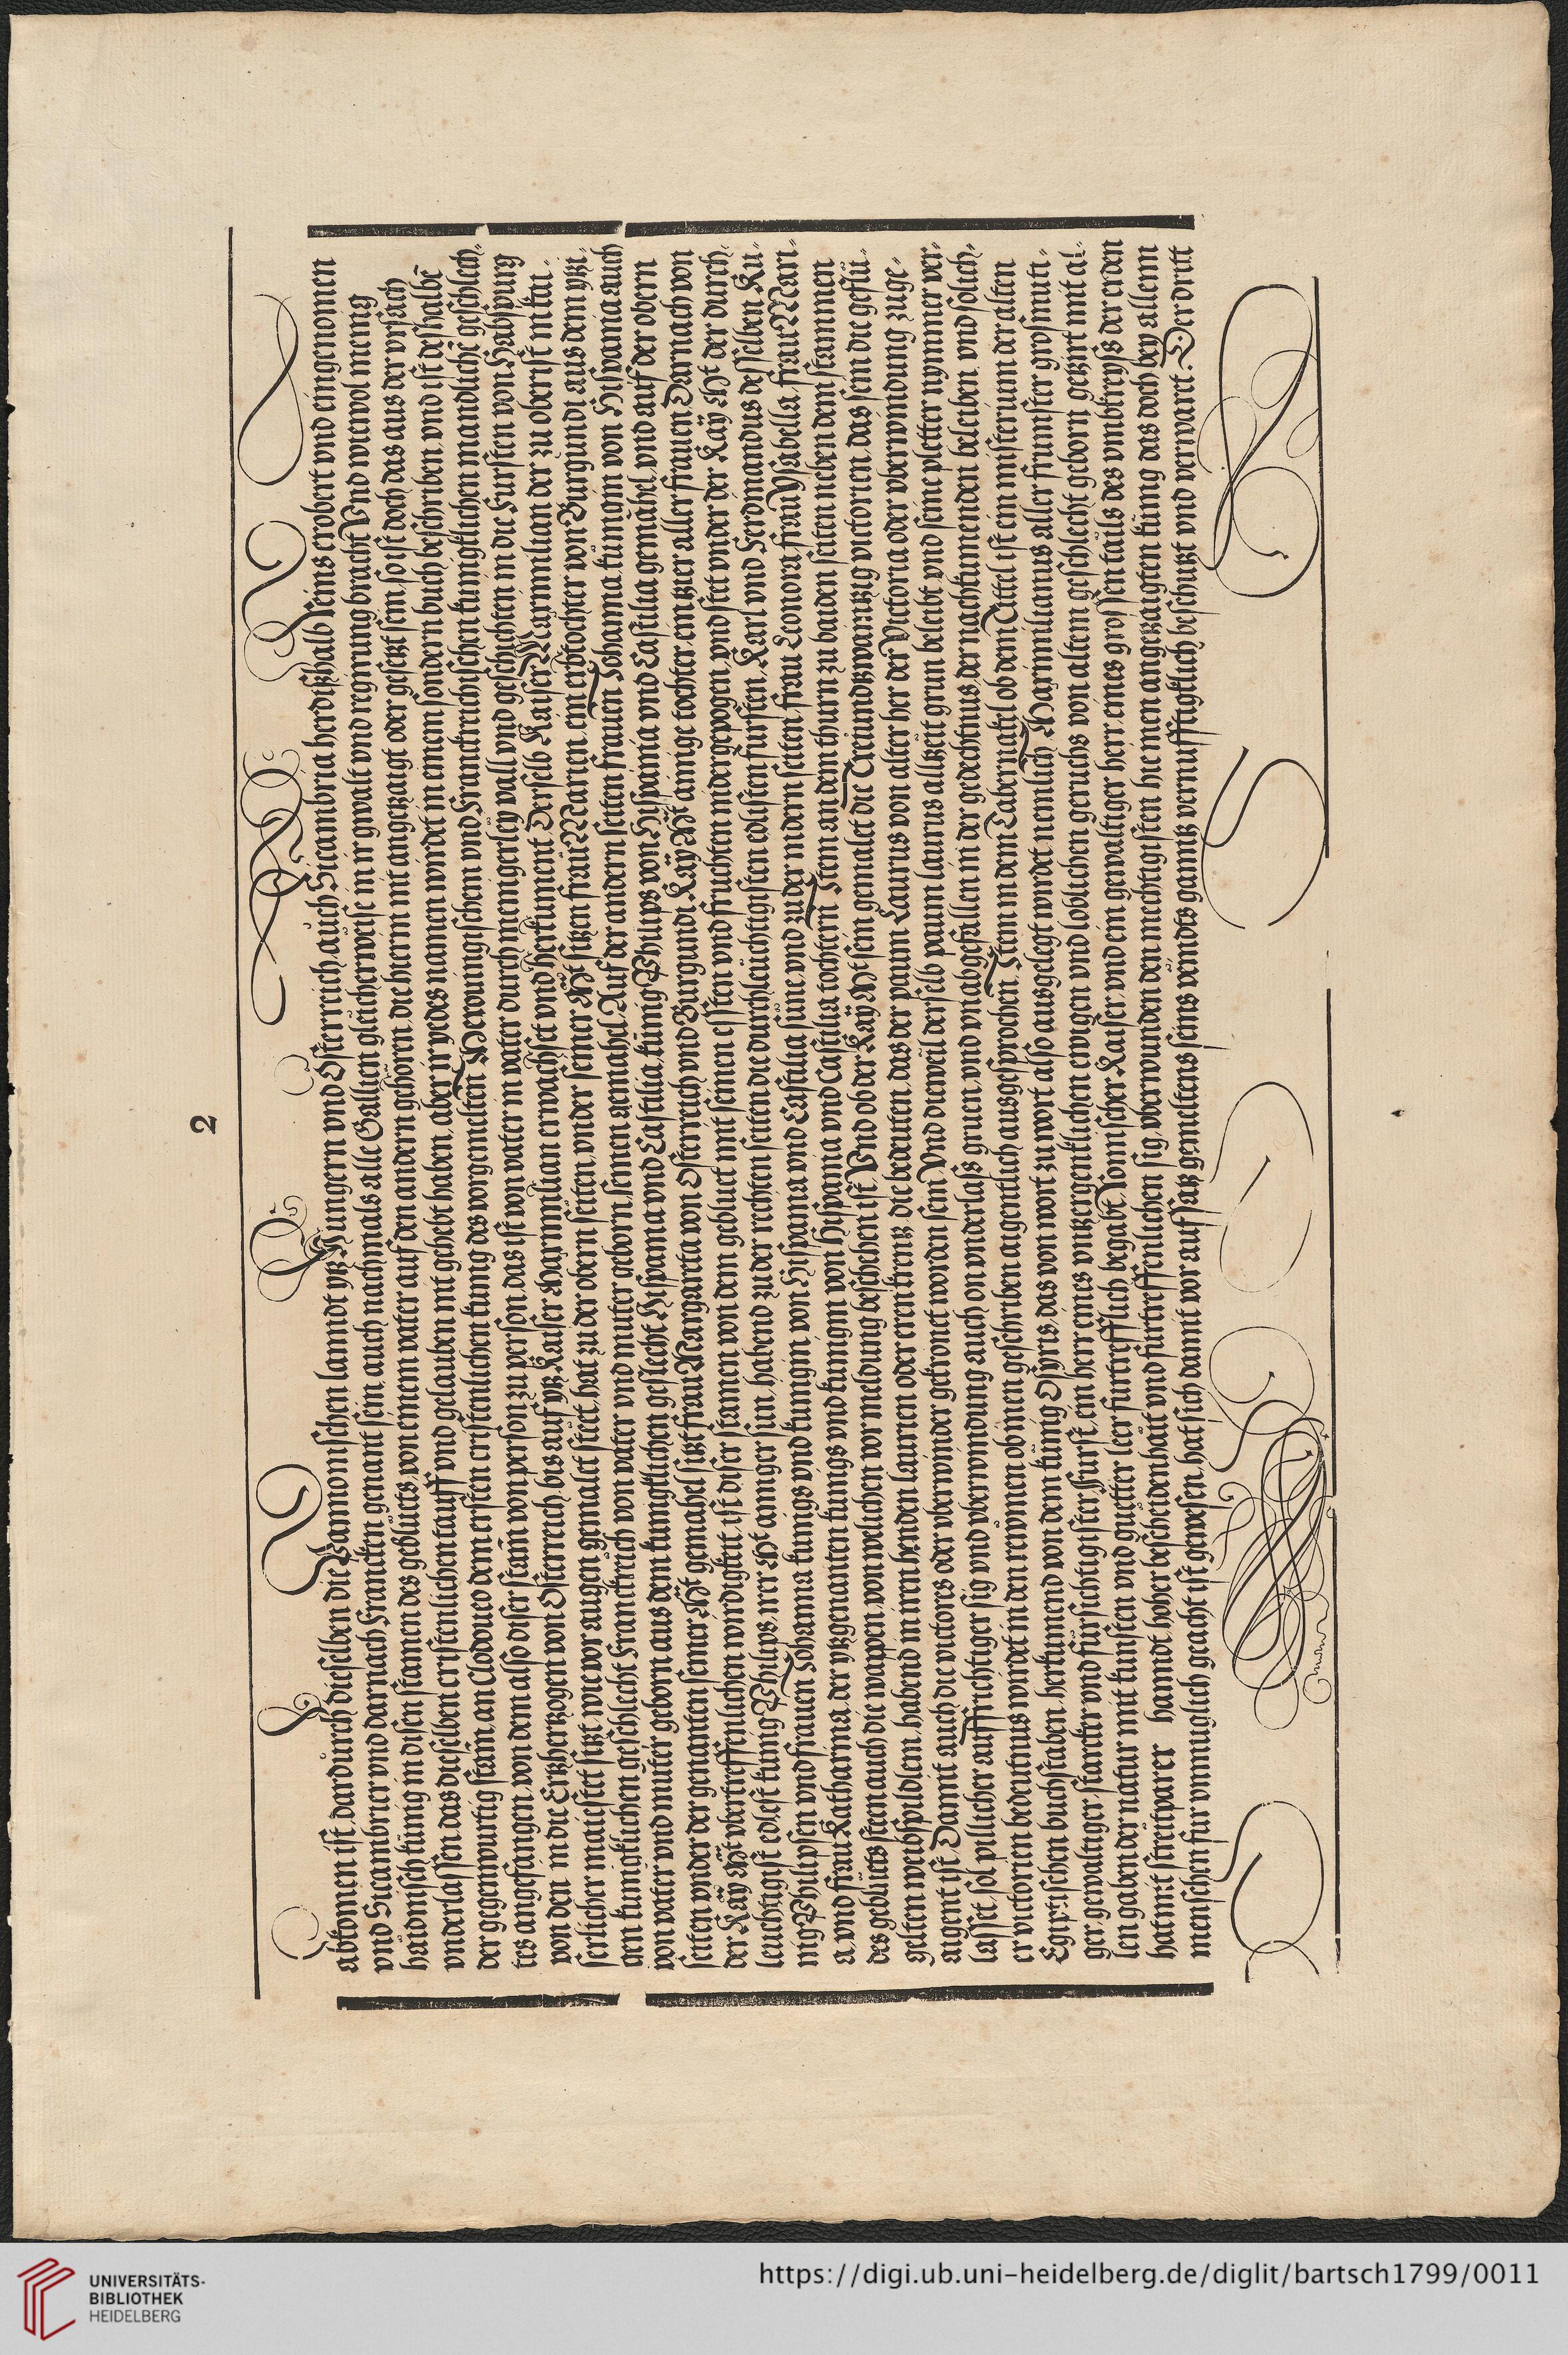 2
abkomen ist, dardurch dieselben die Pannonischen lanndt ytz Hungern vnd Osterreich, auch Sicambria herdißhalb Reins erobert vnd eingenomen
vnd Sicambrier vnd darnach Francken genant sein, auch nachmals alle Gallien gleicherweise in ir gwalt vnd regirung bracht Vnd wiewol menig
haidnisch künig in disen stamen des geblüets, von einem vater auf den andern gehören, die hierin nit angetzaigt oder gesetzt sein, so ist doch das aus der vrsach
vnderlassen, das dieselben cristenlichen tauff vnd gelauben nit gehebt haben, aber ir yedes namen wirdet in einem sondern buch beschriben, vnd ist deßhalbē
der gegenwurtig stam, an Clodoueo dem ersten cristenlichen kunig des vorgemelten Merouingischem vnd Franckreichischen kunigklichen mandlichē geschlech-
tes angefangen, von dem also diser stam̄ von person zu person, das ist von vater in vater durch menigerley vall vnd geschichten in die Fursten von Habspurg
von den in die Ertzhertzogen von Osterreich, bis auf ytz Kaiser Maximilian erwachset vnd herkument Derselb Kaiser Maximilian der zu oberist in kai-
serlicher maiestet sitzt wie vor augen gemalet steet, hat zu der obern seiten, vnder seiner Mt sitzen frau Marien, ein erbtochter von Burgundi aus dem ytzi-
gen kunigklichen geschlecht Franckreich von vater vnd muter geborn, seinen gemahel, Auf der andern seiten frauen Johanna, kunigin von Hispania auch
von vater vnd muter geborn aus dem kunigklichen geslecht Hispania vnd Castilia, kunig Philips von Hispania vnd Castilia gemahel, vnd auf der obern
seiten vnder der genanten seiner Mt gemahel sitzt frau Margareta von Osterreich vnd Burgundi, Kay Mt ainige tochter, ein tzier aller frauen Darnach von
der Kay Mt vbertreffenlichen wirdigkeit, ist diser stamen von dem gebluet mit seinen essten vnd fruchten nidergepogen, vnd stet vnder der Kay Mt der durch-
leuchtigist edlest kunig Philips, irer Mt ainiger sun, habend zu der rechten seiten die durchleuchtigisten edlisten fursten, Karl vnd Ferdinandus desselben Ku-
nig Philipsen vnd frauen Johanna kunigs vnd kunigin, von Hispania vnd Castilia süne, vnd zu der nidern seiten frau Leonora, frau Ysabella, frau Mari-
a, vnd frau Katharina, der ytzgenanten kunigs vnd kunigin von Hispania vnd Castilia tochtern Item an dem thurn zu baiden seiten neben dem stammen
des geblüets steen auch die wappen, von welichen vor meldung beschehen ist, Vnd ob der Kay Mt sein gemalet die Treiundtzwaintzig victorien, das sein die geflü-
gelten weibspildlein, habend in iren henden laurien oder eren krentz die bedeuten, das der paum Laurus von alter her der Victoria oder vberwindung zuge-
aigent ist, Damit auch die victores oder vberwinder gekronet worden sein Vnd dieweil derselb paum laurus alltzeit grun beleibt vnd seine pletter nymmer ver-
lasset, sol pillicher auffrichtiger sig vnd vberwindung auch on vnderlaß gruen, vnd vnabgefallen in der gedechtnus, der nachkumenden beleiben, vnd solich-
er victorien bedeutnus wirdet in den reymen ob inen geschriben aigentlich ausgesprochen, Item in dem Tabernakil ob dem Tittel ist ein misterium der alten
Egiptischen buchstaben, herkumend von dem kunig Osyris, das von wort zu wort also ausgelegt wirdet nemlich, Maximilianus aller frumister großmuti-
ger gewaltiger starcker vnd fürsichtigister Furst, ein herr eines vntzergencklichen ewigen vnd loblichen geruchs von altem geschlecht geborn getzirt mit al-
len gaben der natur mit kunsten vnd gutter leer furtrefflich begabt, Romischer Kaiser, vnd ein gewaltiger herr, eines grossen tails des vmbkreyß der erden
hat mit streitparer hanndt, hoher bescheidenhait vnd furtreffenlichen sig, vberwunden den mechtigisten hie inen angetzaigten kunig das doch bey allenn
menschen fur vnmuglich geacht ist gewesen, hat sich damit vor aufsatz gemeltens seins veindts ganntz vernufftigklich beschutzt vnd verwaret. Der dritt
https://digi.ub.uni-heidelberg.de/diglit/bartsch1799/0011
UNIVERSITÄTS-
BIBLIOTHEK
HEIDELBERG